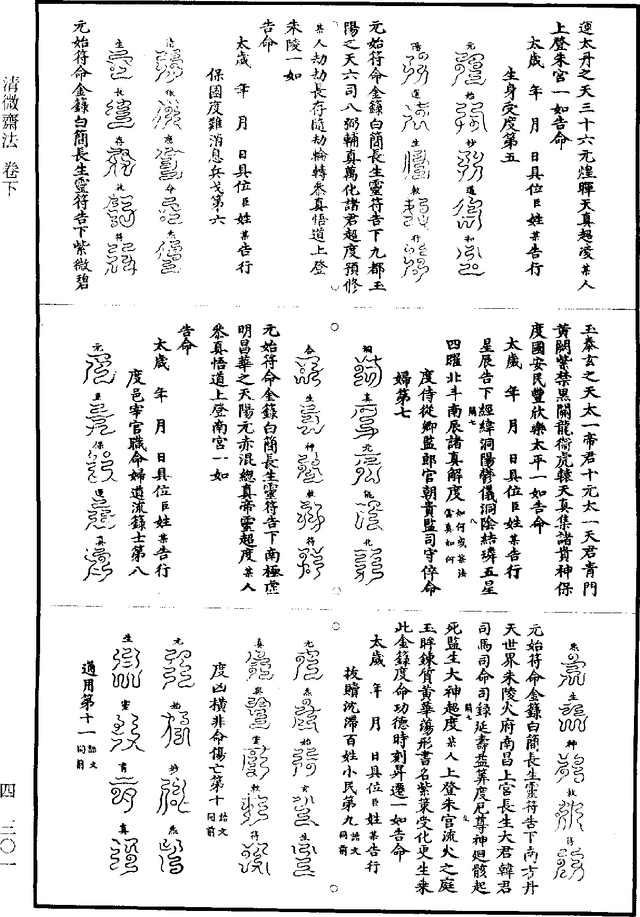 運太丹之天三十六元煌暉天真超凌某人
上登朱宮一如告命
太歲　年　月　日具位臣姓某告行
生身受度第五
元　始　妙　道　和
陽　運　生　敕　符
元始符命金籙白簡長生靈符告下九都玉
陽之天六司八弼輔真萬化諸君超度預修
某人劫劫長存隨劫輪轉參真悟道上登
朱陵一如
告命
太歲　年　月　日具位臣姓某告行
保國度難消息兵戈第六
生　長　存　符
元始符命金籙白簡長生靈符告下紫微碧
玉泰玄之天太一帝君十元太一天君青門
黃闕紫禁黑關龍衛虎轅天真集諸貴神保
度國安民豐欣樂太平一如告命
太歲　年　月　日具位臣姓某告行
星辰告下經緯洞陽鬱儀洞陰結璘五星
四曜北斗南辰諸真解度
度侍從卿監郎官朝貴監司守倅命
婦第七
洞　真　元　化
合　生　神　敕　符
元始符命金籙白簡長生靈符告下南極虛
明昌華之天陽元赤混總真帝靈超度某人
參真悟道上登南宮一如
告命
太歲　年　月　日具位臣姓某告行
度邑宰官職命婦道流籙士第八
元　皇　保　運　真
生　神　敕　符
元始符命金籙白簡長生靈符告下南方丹
天世界朱陵火府南昌上宮長生大君韓君
司馬司命司錄延壽益算度厄尊神迴骸起
死監生大神超度某人上登朱宮流火之庭
玉眸鍊質黃華蕩形書名紫策受化更生來
此金籙度命功德時刻昇遷一如告命
太歲　年　月　日具位臣姓某告行
拔贖沈滯百姓小民第九誥文同前
元　始　玄　生
真　靈　敕　符
度凶橫非命傷亡第十誥文同前
元　始　妙
生　靈　育　真
通用第十一誥文同前
清微齋法　卷下
四　三〇一